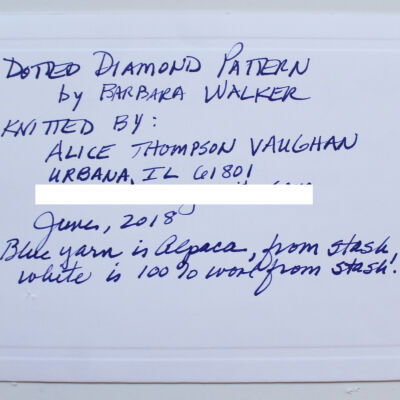 DOTTED DIAMOND PATTERN
by BARBARA WALKER
KNITTED BY:
ALICE THOMPSON VAUGHAN
URBANA, IL 61801
June, 2018
Blue yarn is Alpaca, from stash!
white is 100% wool from stash!